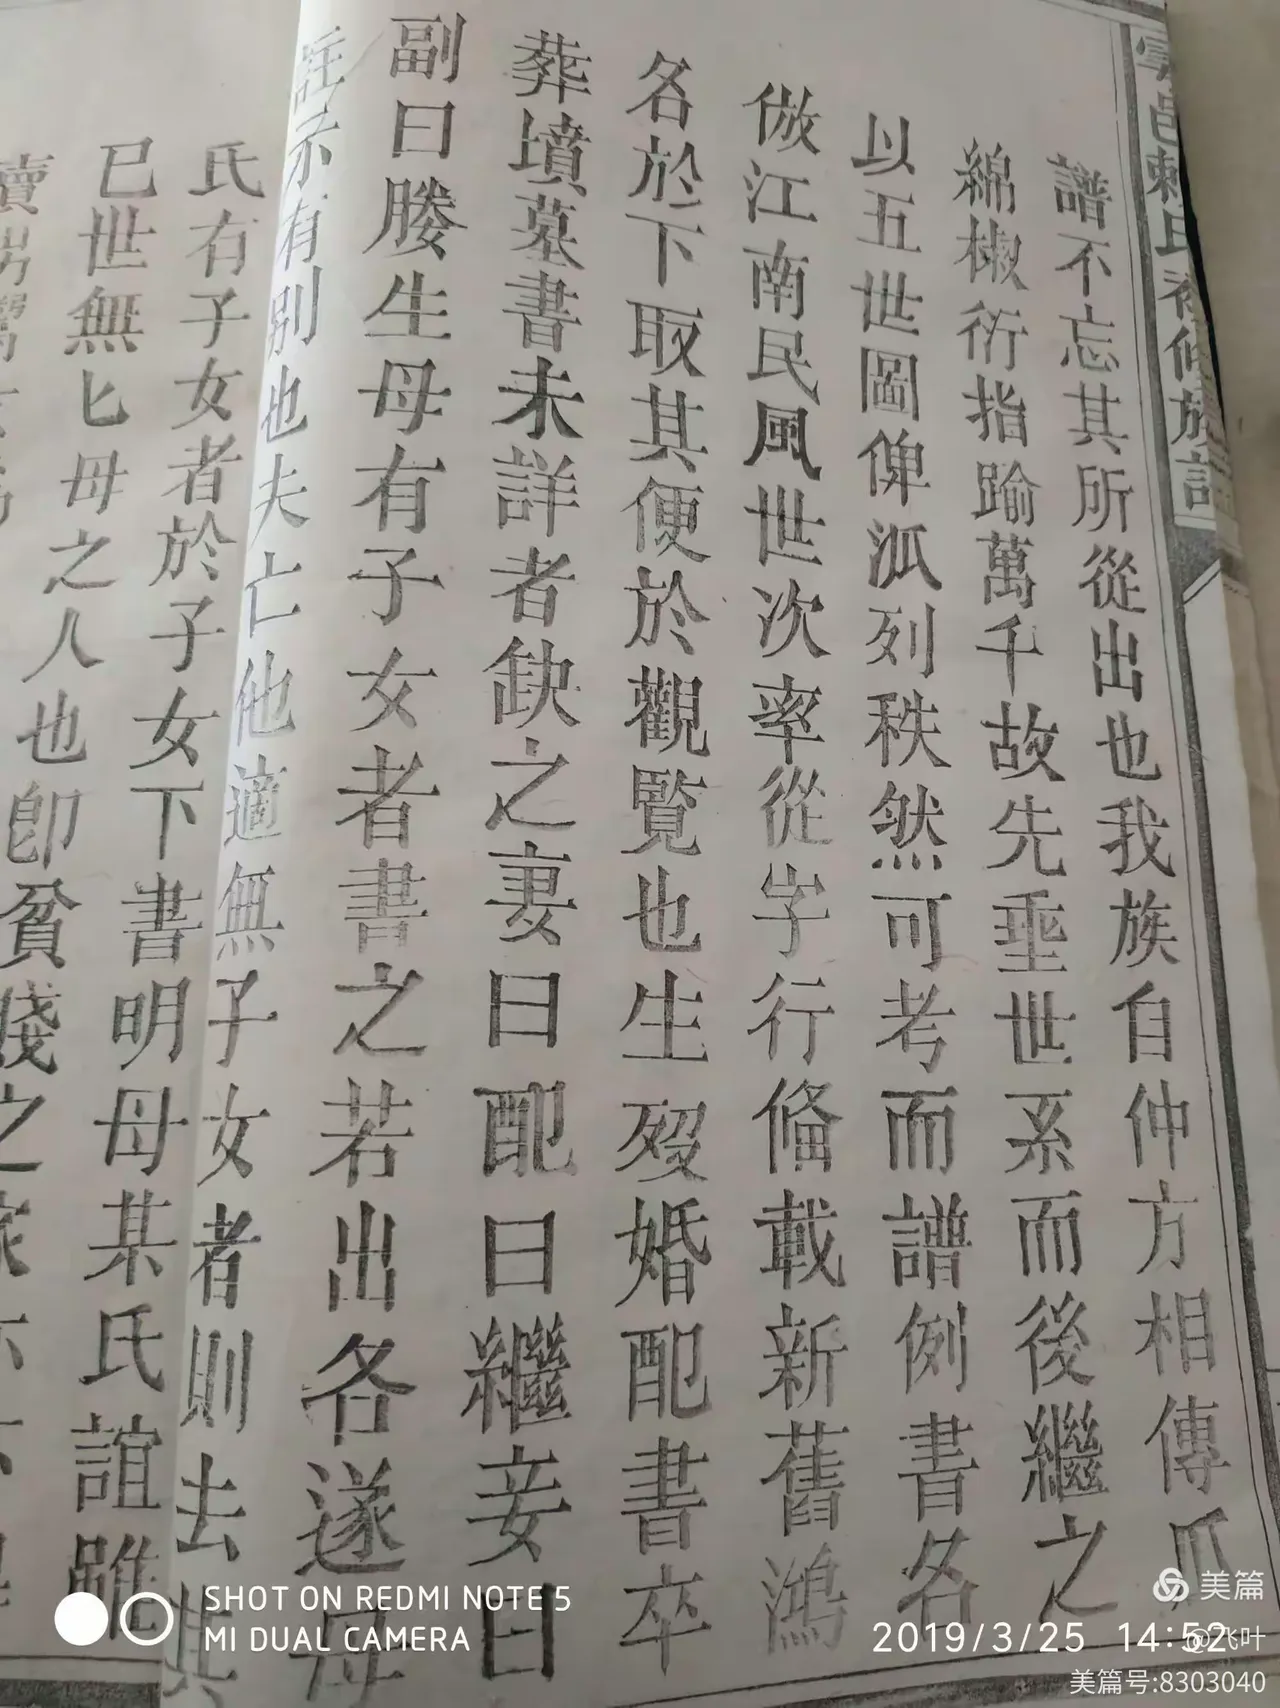 寧邑賴氏補修族譜
譜不忘其所從出也我族自仲方相傳瓜
綿椒衍指踰萬千故先垂世系而後繼之
以五世圖俾派列秩然可考而譜例書名
倣江南民風世次率從字行備載新舊鴻
名於下取其便於觀覽也生歿婚配書卒
葬墳墓書未詳者缺之妻曰配曰繼妾曰
副曰媵生母有子女者書之若出各遂母
註示有别也夫亡他適無子女者則去其
氏有子女者於子女下書明母某氏誼雖
已世無匕母之人也卽貧賤之家
賣
SHOT ON REDMI NOTE 5
MI DUAL CAMERA
2019/3/25 14:52
美篇
@飞叶
美篇号:8303040